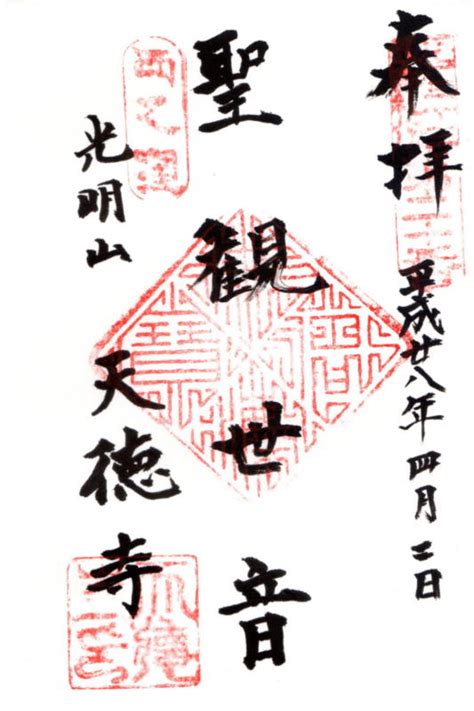 奉拝
平成廿八年四月二日
聖観世音
西之窪
光明山
天徳寺